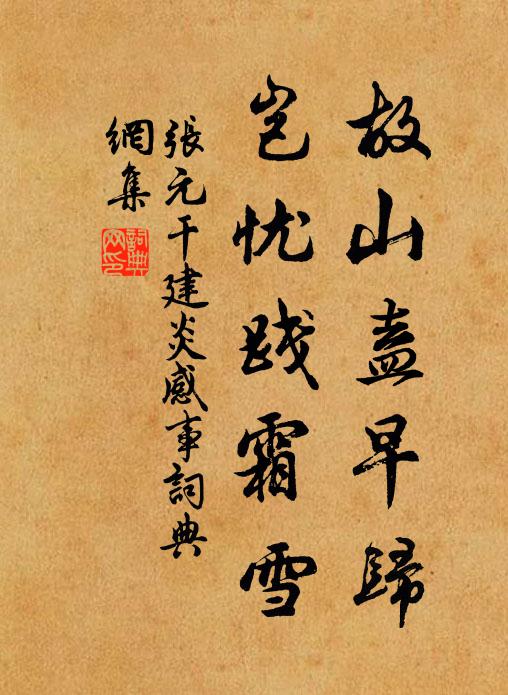 故山盍早歸
岂忧践霜雪
張元干建炎感事詞典
網集
詞典網印